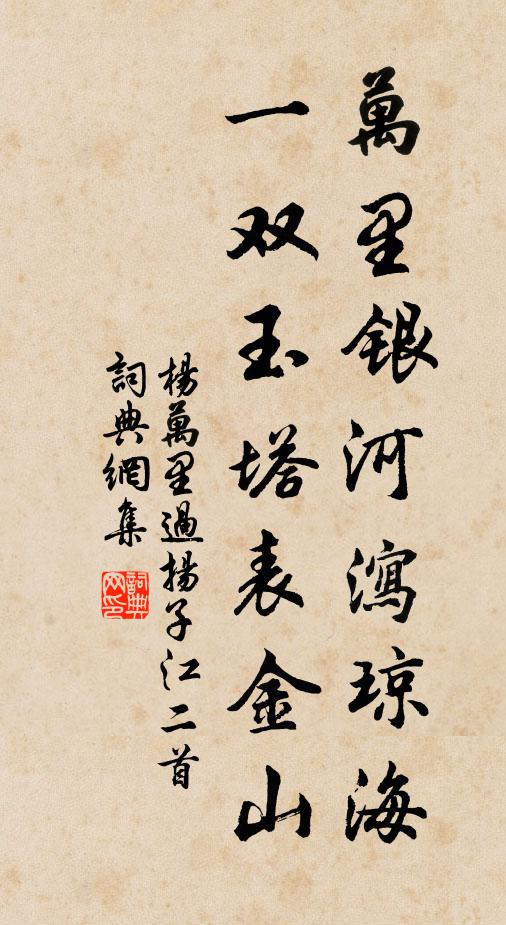 萬里銀河瀉琼海
一双玉塔表金山
楊萬里過揚子江二首
詞典網集
詞典
网印